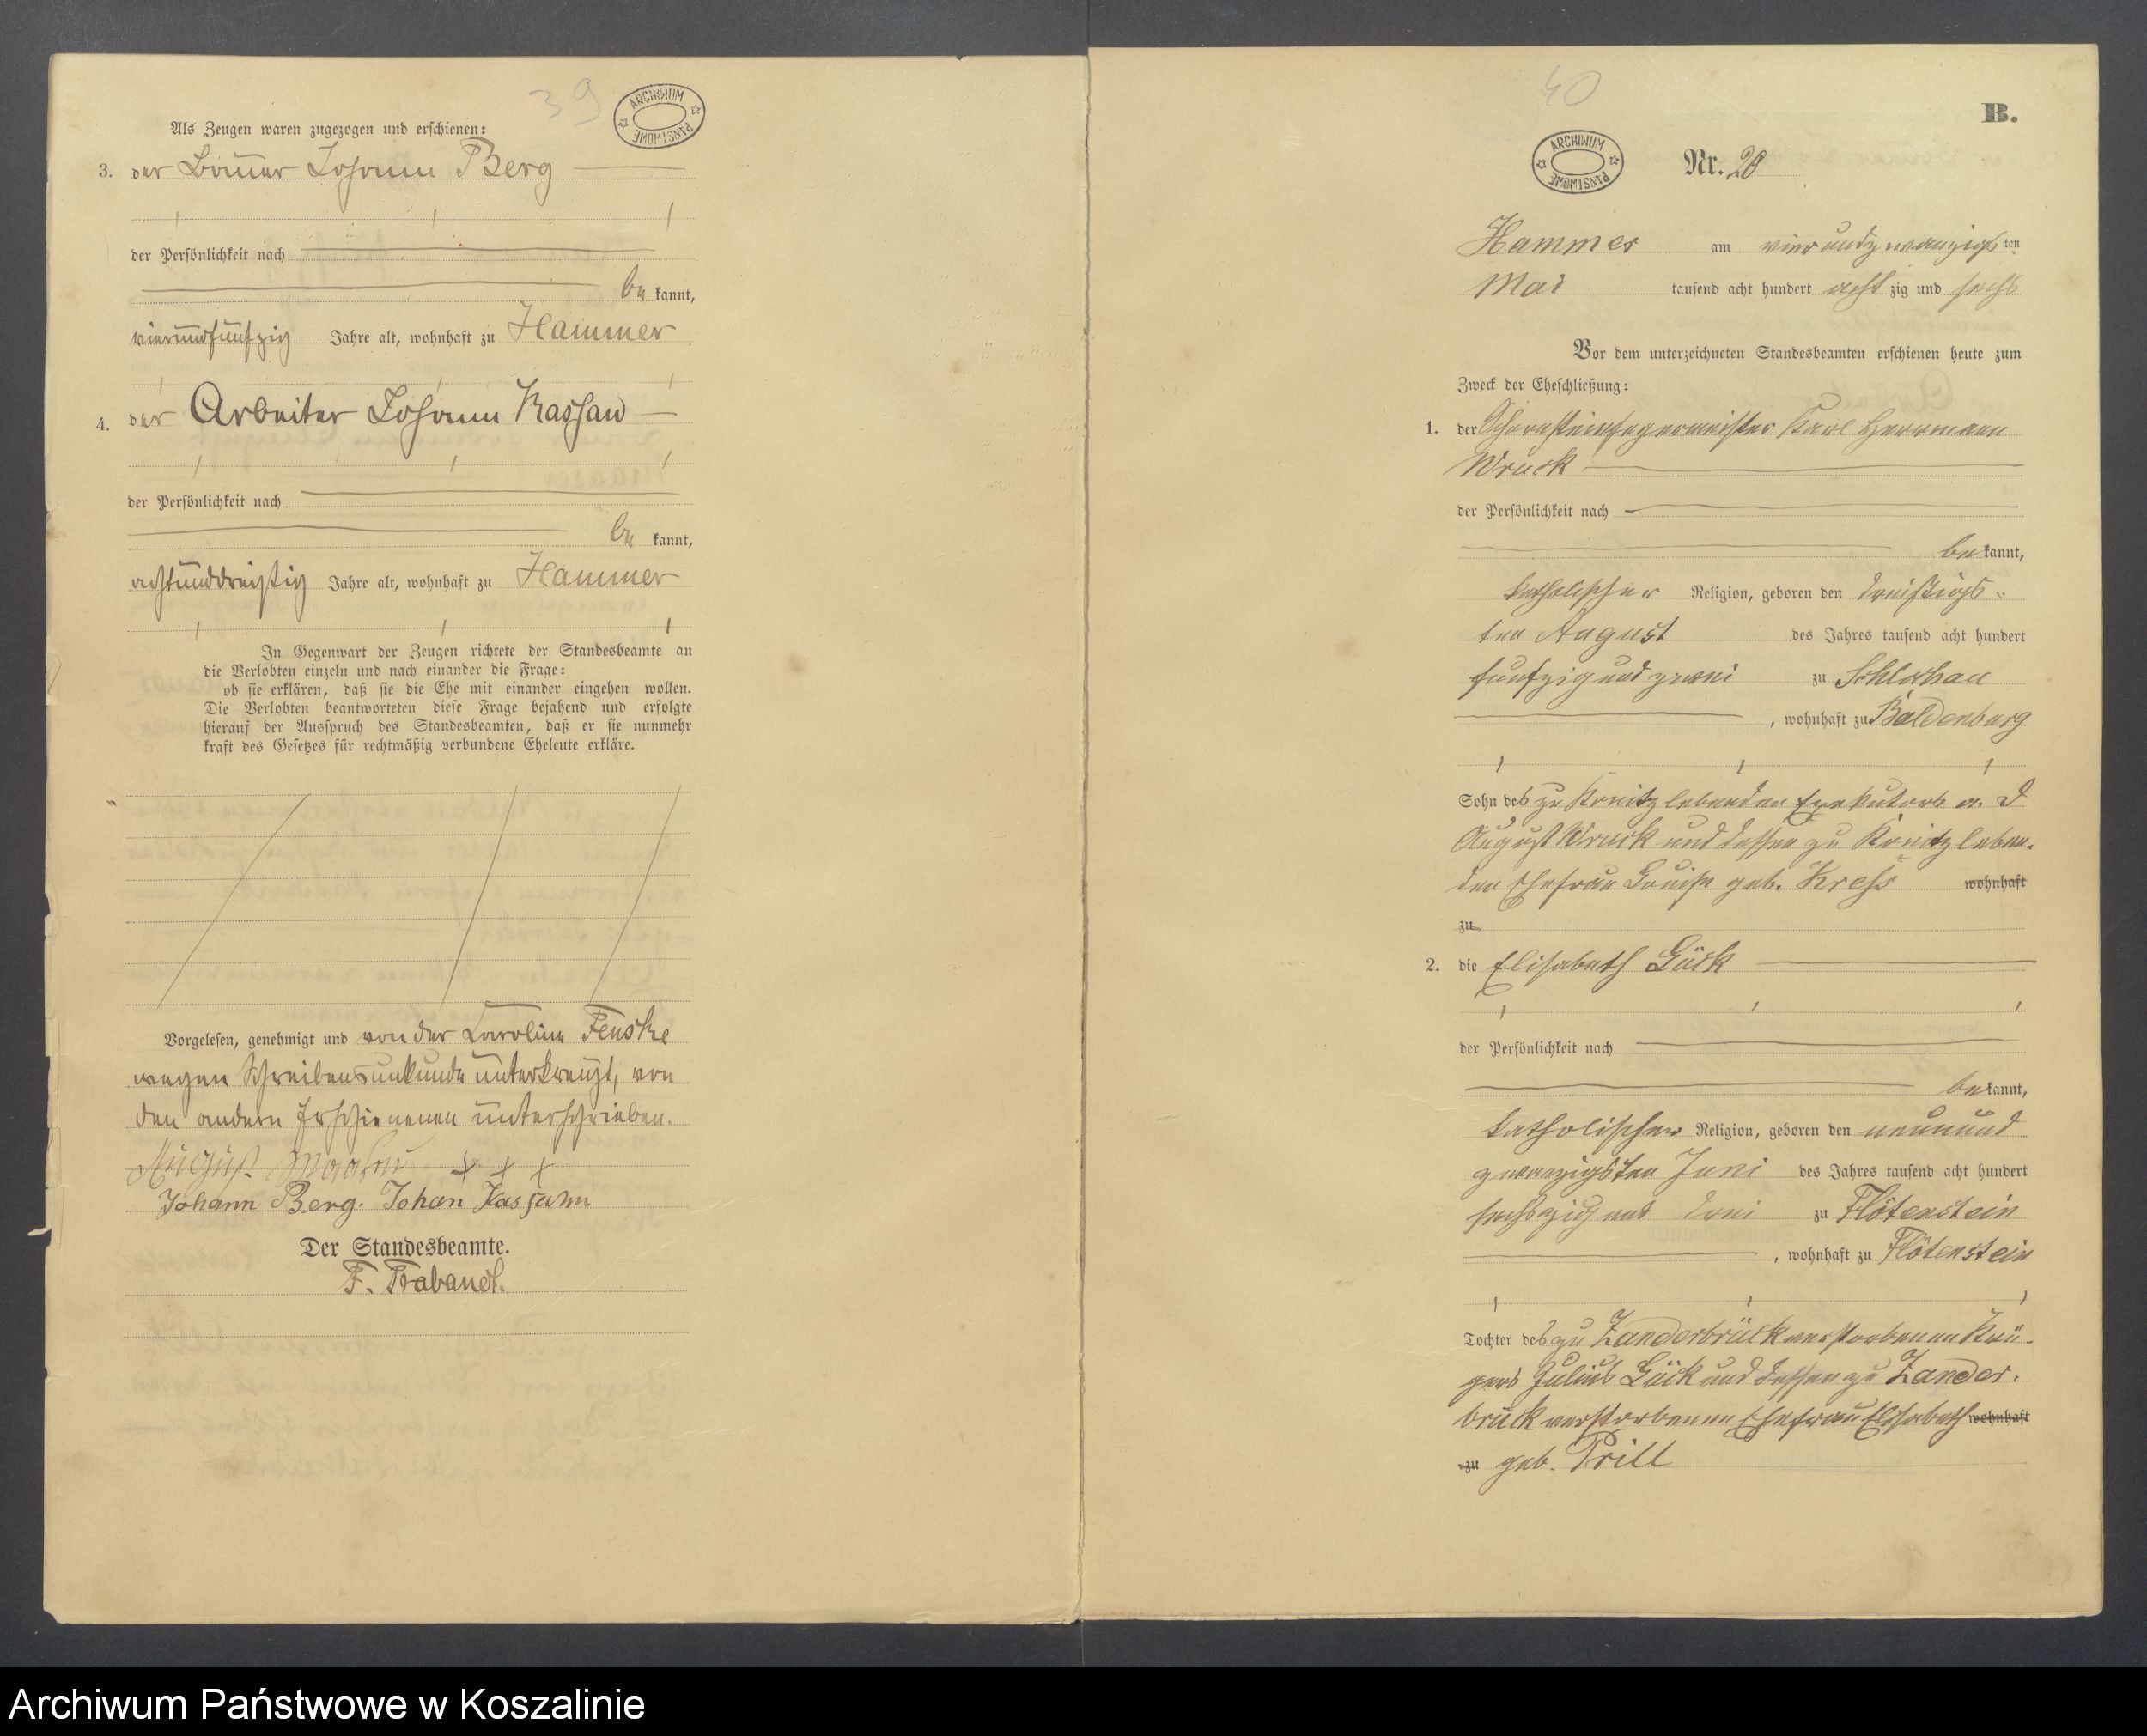 39
ARCHIWUM PAŃSTWOWE
Als Zeugen waren zugezogen und erschienen:
3. der Bauer Johann Berg
der Persönlichkeit nach
be kannt,
vierundfünfzig Jahre alt, wohnhaft zu Hammer
4. der Arbeiter Johann Kassau
der Persönlichkeit nach
be kannt,
achtunddreißig Jahre alt, wohnhaft zu Hammer
In Gegenwart der Zeugen richtete der Standesbeamte an
die Verlobten einzeln und nach einander die Frage:
ob sie erklären, daß sie die Ehe mit einander eingehen wollen.
Die Verlobten beantworteten diese Frage bejahend und erfolgte
hierauf der Ausspruch des Standesbeamten, daß er sie nunmehr
kraft des Gesetzes für rechtmäßig verbundene Eheleute erkläre.
Vorgelesen, genehmigt und von der Caroline Fenske
wegen Schreibensunkunde unterkreuzt, von
den andern Erschienenen unterschrieben.
August + + +
Johann Berg. Johan Kassahn
Der Standesbeamte.
F. Trabandt.
40
B.
ARCHIWUM PAŃSTWOWE
Nr. 20
Hammer am vierundzwanzigs ten
Mai tausend acht hundert acht zig und sechs
Vor dem unterzeichneten Standesbeamten erschienen heute zum
Zweck der Eheschließung:
1. der Schornsteinfegermeister Karl Herrmann
Wruck
der Persönlichkeit nach
be kannt,
katholischer Religion, geboren den dreißigs-
ten August des Jahres tausend acht hundert
funfzig und zwei zu Schlochau
, wohnhaft zu Baldenburg
Sohn des zu Konitz lebenden Exekutors a. D
August Wruck und dessen zu Konitz leben-
den Ehefrau Louise geb. Kress wohnhaft
zu
2. die Elisabeth Gück
der Persönlichkeit nach
be kannt,
katholischer Religion, geboren den neunund
zwanzigsten Juni des Jahres tausend acht hundert
sechszig und drei zu Flötenstein
, wohnhaft zu Flötenstein
Tochter des zu Zanderbrück verstorbenen Krü-
gers Julius Gück und dessen zu Zander-
brück verstorbenen Ehefrau Elisabeth wohnhaft
zu geb. Prill
Archiwum Państwowe w Koszalinie